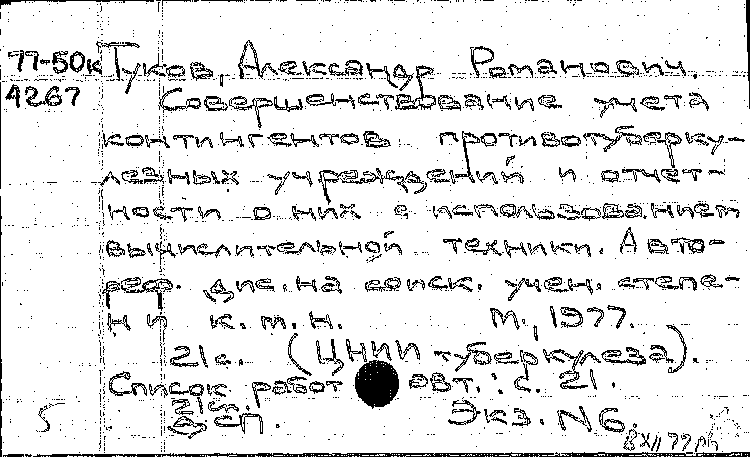 77-50к Туков, Александр Романович.
4267 Совершенствование учета
контингентов противотуберку-
лезных учреждений и отчет-
ности о них с использованием
вычислительной техники. Авто-
реф. дис. на соиск. учен. степе-
ни к. м. н. М., 1977.
21с. (ЦНИИ туберкулеза).
Список работ авт.: с. 21.
ДСП. Экз. N 6.
5